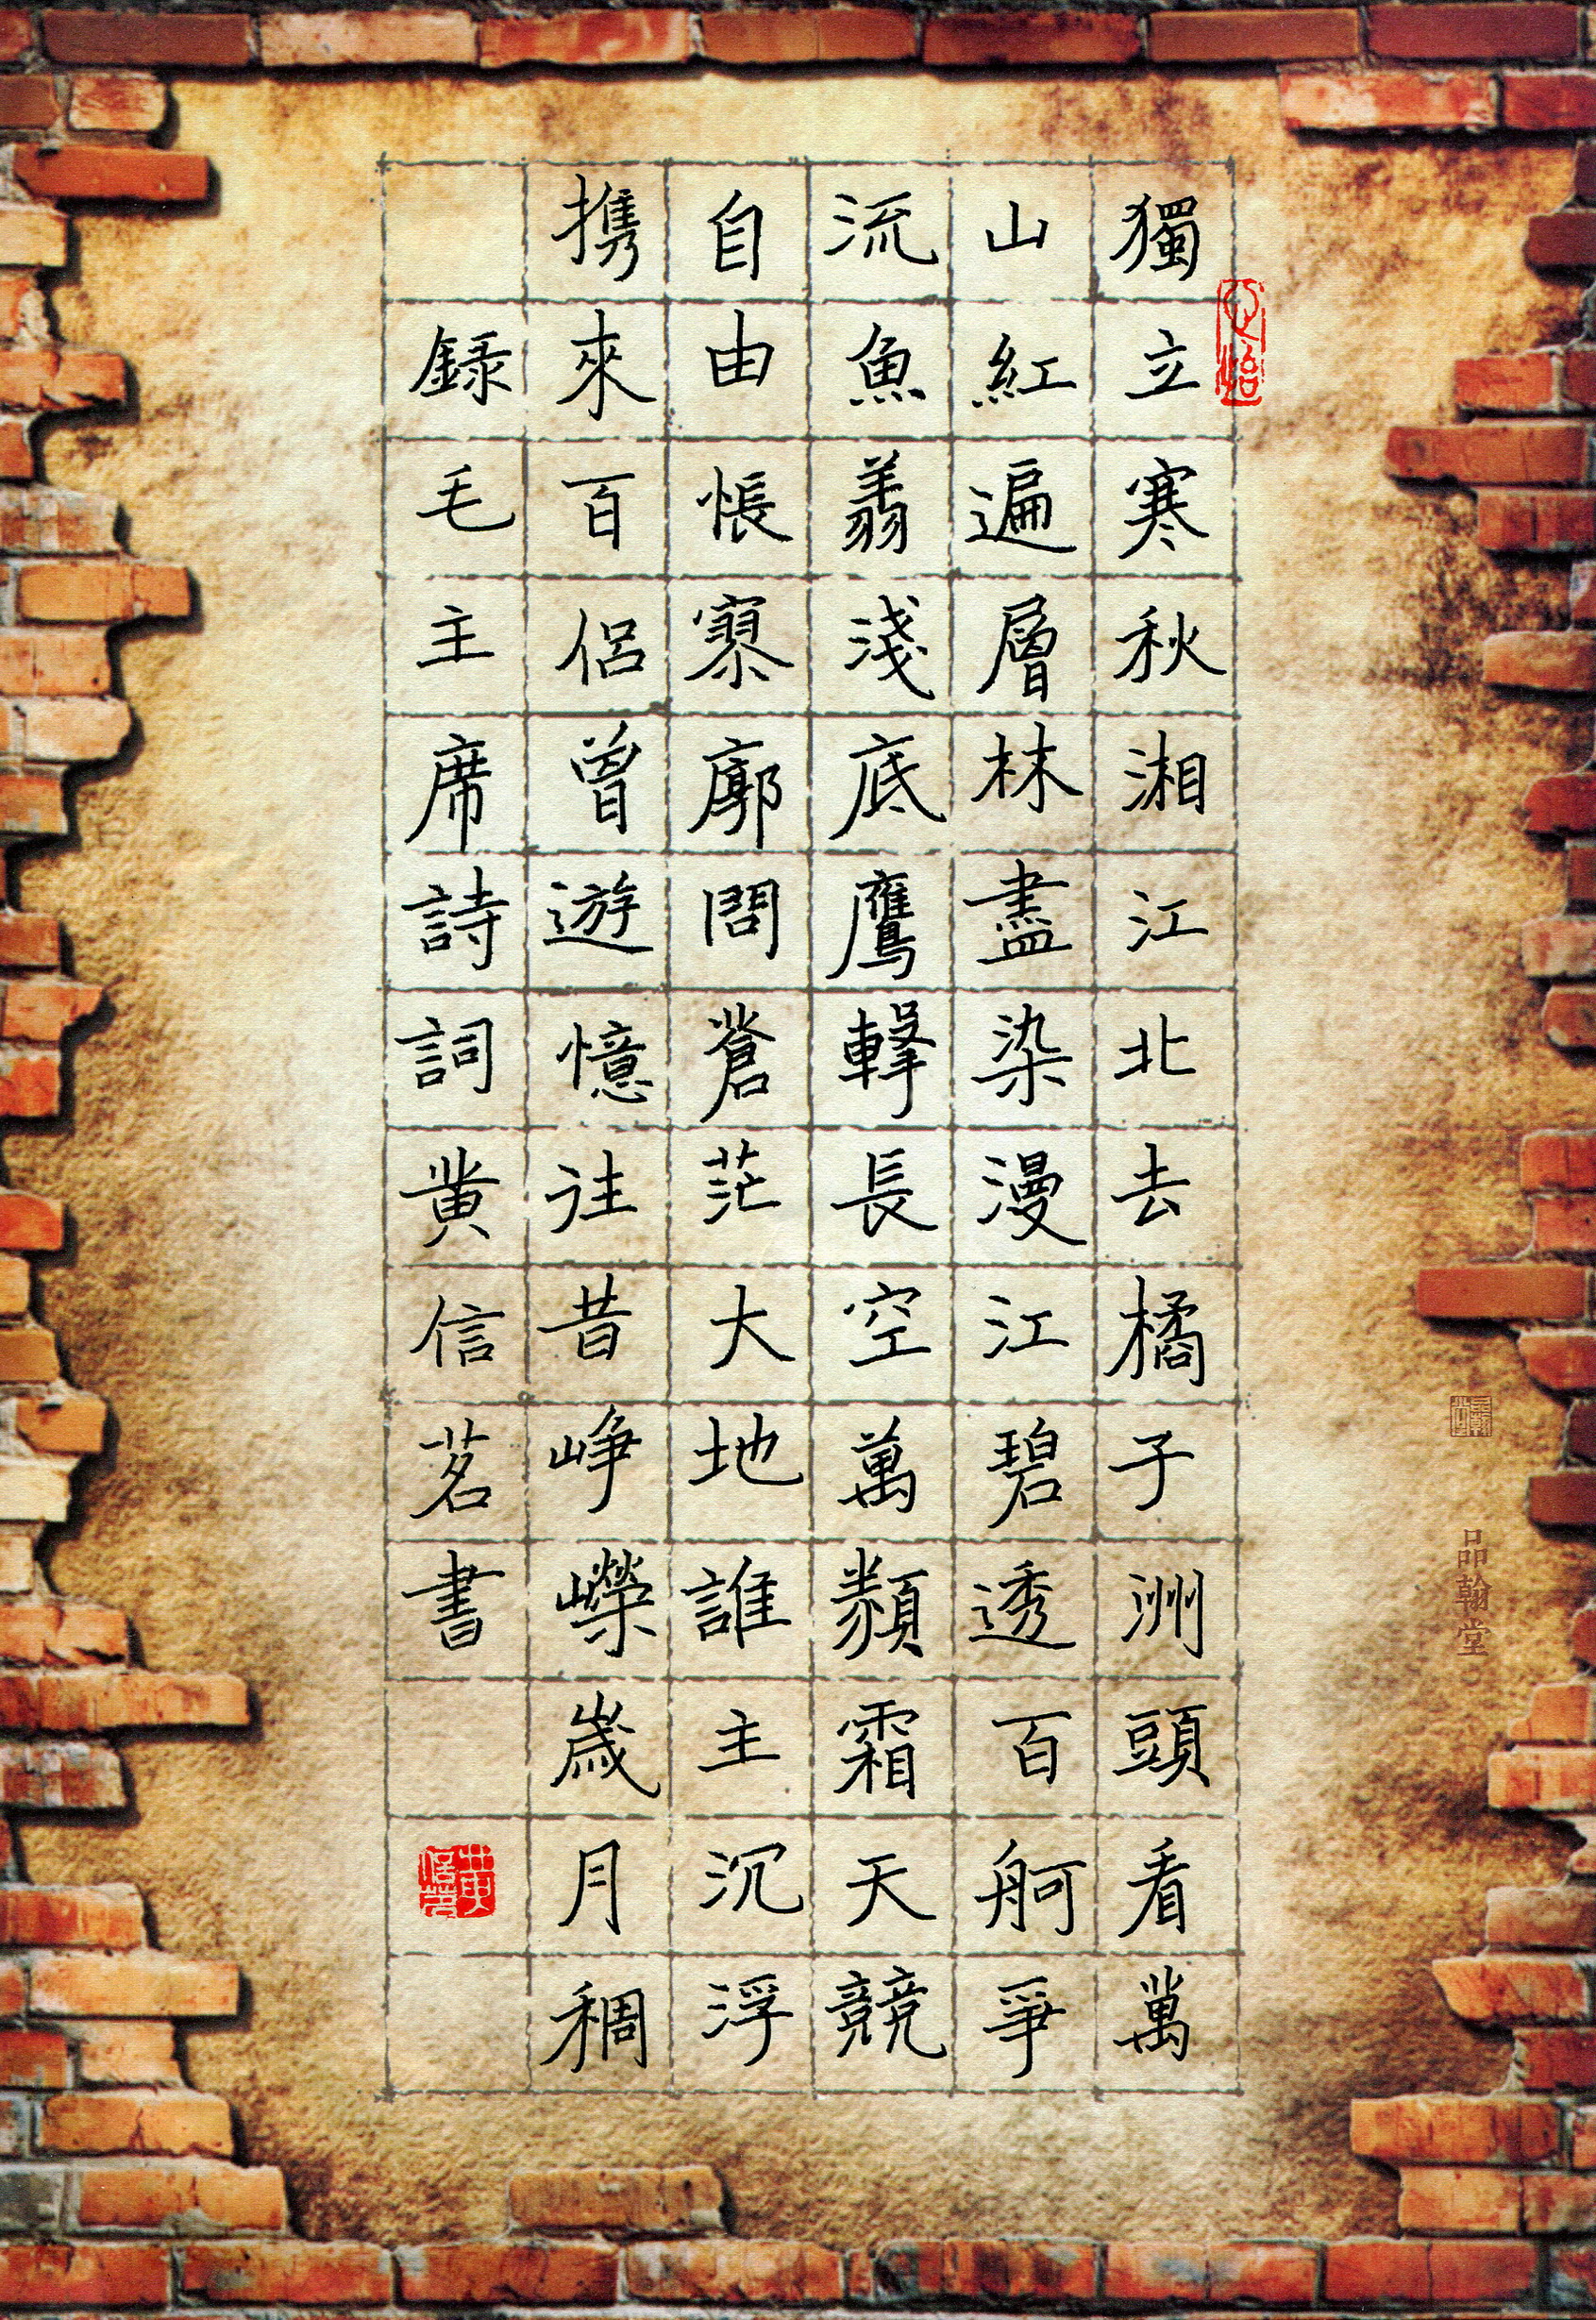 獨立寒秋湘江北去橘子洲頭看萬
山紅遍層林盡染漫江碧透百舸爭
流魚翔淺底鷹擊長空萬類霜天競
自由悵寥廓問蒼茫大地誰主沉浮
携來百侶曾遊憶往昔崢嶸歲月稠
録毛主席詩詞黄信茗書
品翰堂